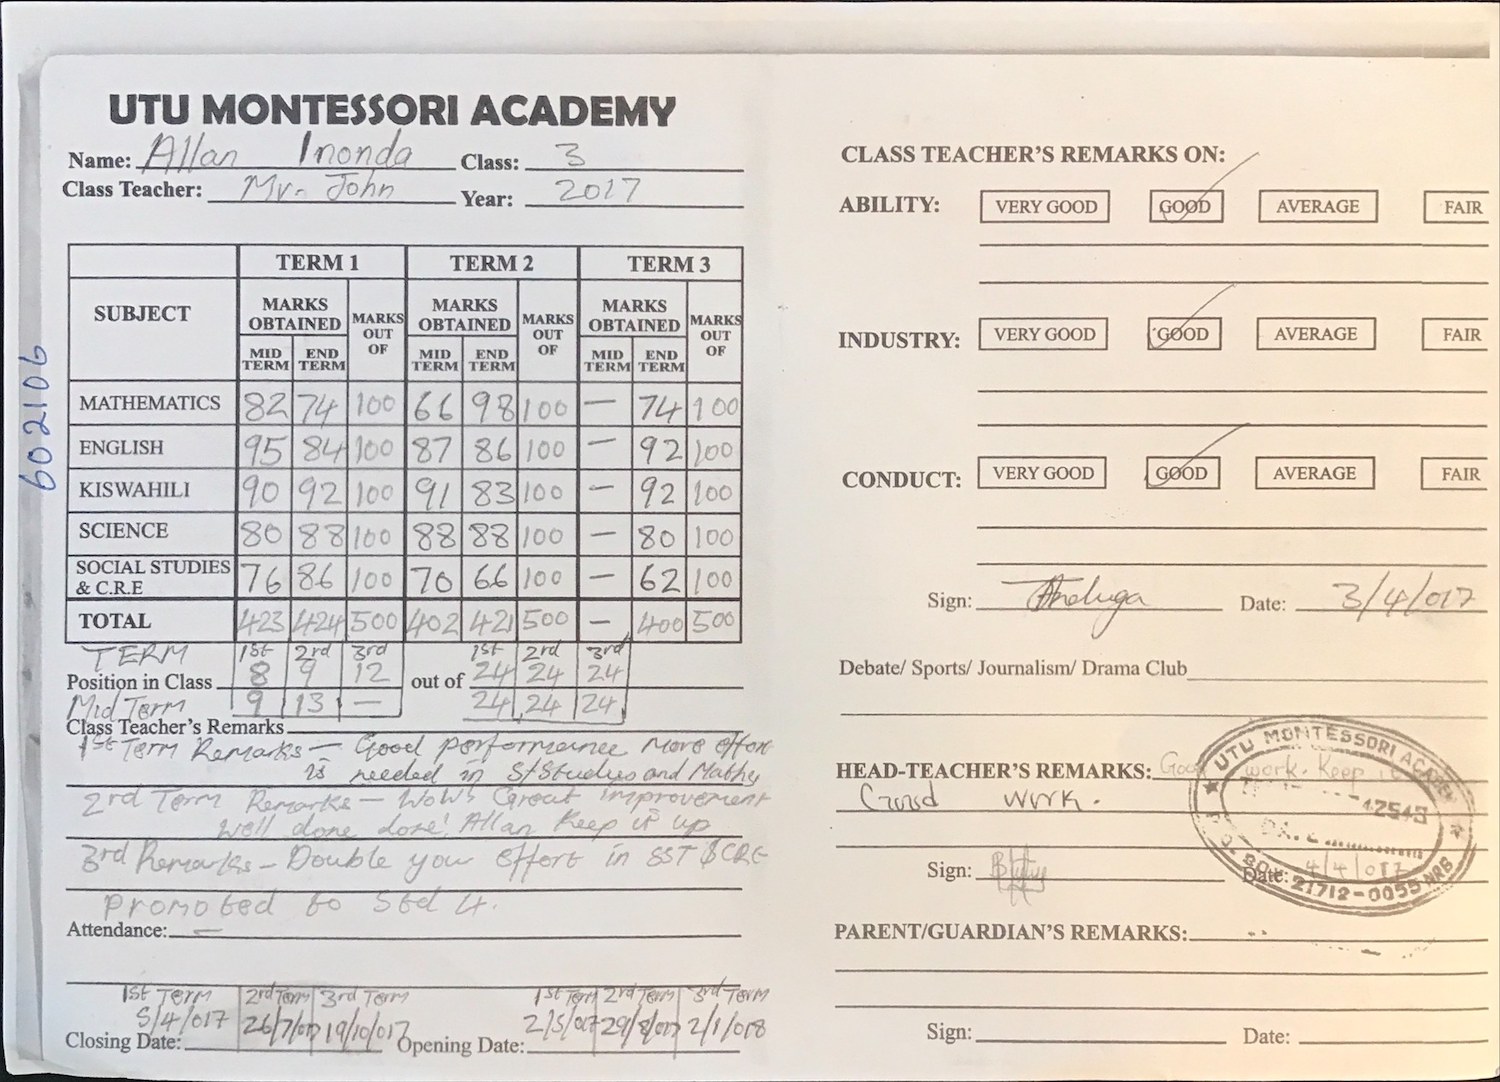 UTU MONTESSORI ACADEMY
Name: Allan Inonda Class: 3
Class Teacher: Mr. John Year: 2017
602106
TERM 1 TERM 2 TERM 3
SUBJECT MARKS OBTAINED MARKS OUT OF MARKS OBTAINED MARKS OUT OF MARKS OBTAINED MARKS OUT OF
MID TERM END TERM MID TERM END TERM MID TERM END TERM
MATHEMATICS 82 74 100 66 98 100 — 74 100
ENGLISH 95 84 100 87 86 100 — 92 100
KISWAHILI 90 92 100 91 83 100 — 92 100
SCIENCE 80 88 100 88 88 100 — 80 100
SOCIAL STUDIES & C.R.E 76 86 100 70 66 100 — 62 100
TOTAL 423 424 500 402 421 500 — 400 500
TERM 1st 2nd 3rd 1st 2nd 3rd
Position in Class 8 9 12 out of 24 24 24
Mid Term 9 13 — 24 24 24
Class Teacher's Remarks
1st Term Remarks — Good performance More effort
is needed in S/Studies and Maths
2nd Term Remarks — Wow! Great improvement
Well done done! Allan Keep it up
3rd Remarks — Double your effort in SST & CRE
Promoted to Std 4.
Attendance: —
1st Term 2nd Term 3rd Term 1st Term 2nd Term 3rd Term
5/4/017 26/7/017 19/10/017 2/5/017 29/8/017 2/1/018
Closing Date: Opening Date:
CLASS TEACHER'S REMARKS ON:
ABILITY: VERY GOOD GOOD AVERAGE FAIR
INDUSTRY: VERY GOOD GOOD AVERAGE FAIR
CONDUCT: VERY GOOD GOOD AVERAGE FAIR
Sign: Date: 3/4/017
Debate/ Sports/ Journalism/ Drama Club
HEAD-TEACHER'S REMARKS: Good work. Keep it
Good work.
UTU MONTESSORI ACADEMY
Sign: Date: 4/4/017
21712-0055 NRB
PARENT/GUARDIAN'S REMARKS:
Sign: Date: